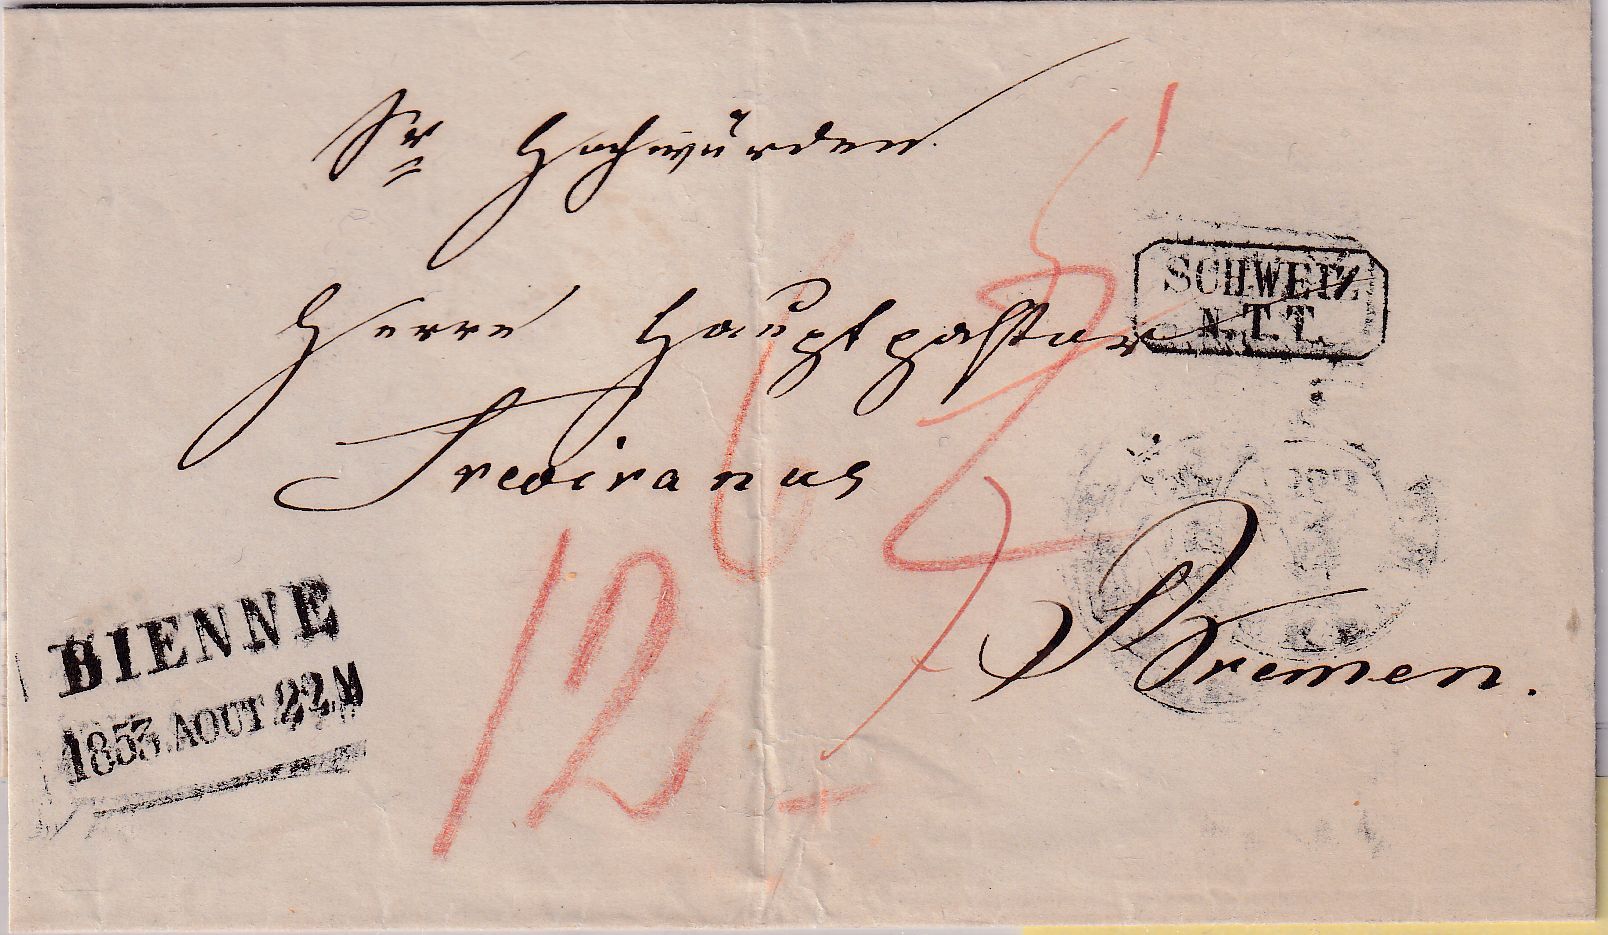 Sr Hochwürden
Herrn Hauptpastor
Treviranus
Bremen.
SCHWEIZ
N.T.T.
BIENNE
1853 AOUT 22 M
12